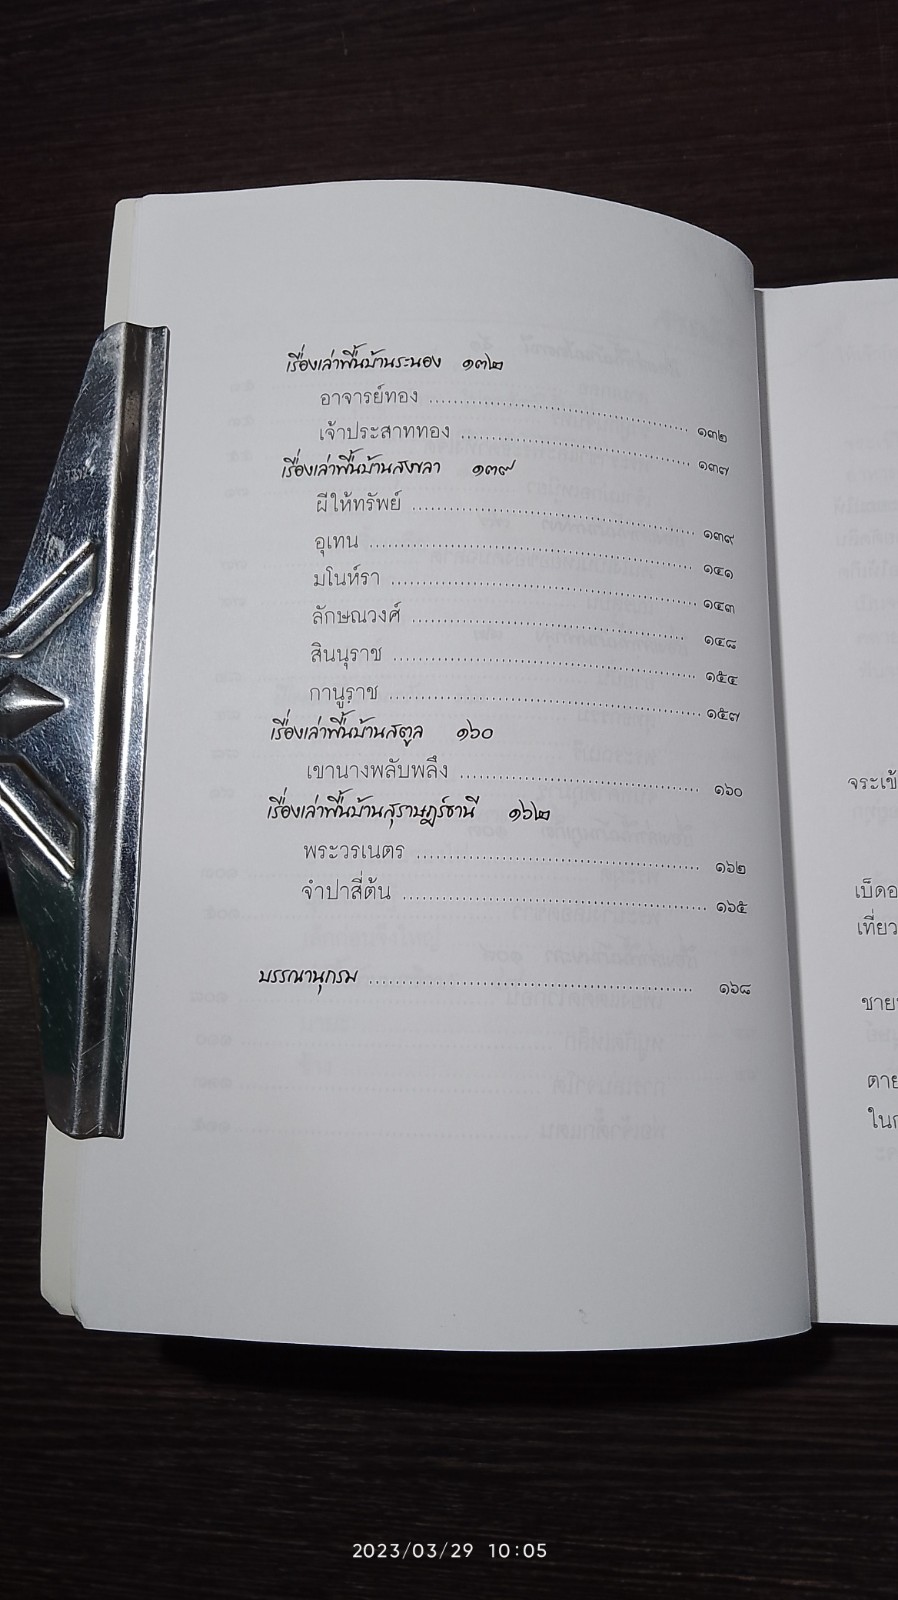 เรื่องเล่าพื้นบ้านระนอง ๑๓๒
อาจารย์ทอง ........................................ ๑๓๒
เจ้าประสาททอง ........................................ ๑๓๗
เรื่องเล่าพื้นบ้านสงขลา ๑๓๙
ผีให้ทรัพย์ ........................................ ๑๓๙
อุเทน ........................................ ๑๔๑
มโนห์รา ........................................ ๑๔๓
ลักษณวงศ์ ........................................ ๑๔๘
สินนุราช ........................................ ๑๕๔
กานูราช ........................................ ๑๕๗
เรื่องเล่าพื้นบ้านสตูล ๑๖๐
เขานางพลับพลึง ........................................ ๑๖๐
เรื่องเล่าพื้นบ้านสุราษฎร์ธานี ๑๖๒
พระวรเนตร ........................................ ๑๖๒
จำปาสี่ต้น ........................................ ๑๖๕
บรรณานุกรม ........................................ ๑๖๘
จระเข้
เบ็ด
เที่ยว
ชาย
ตาย
2023/03/29 10:05